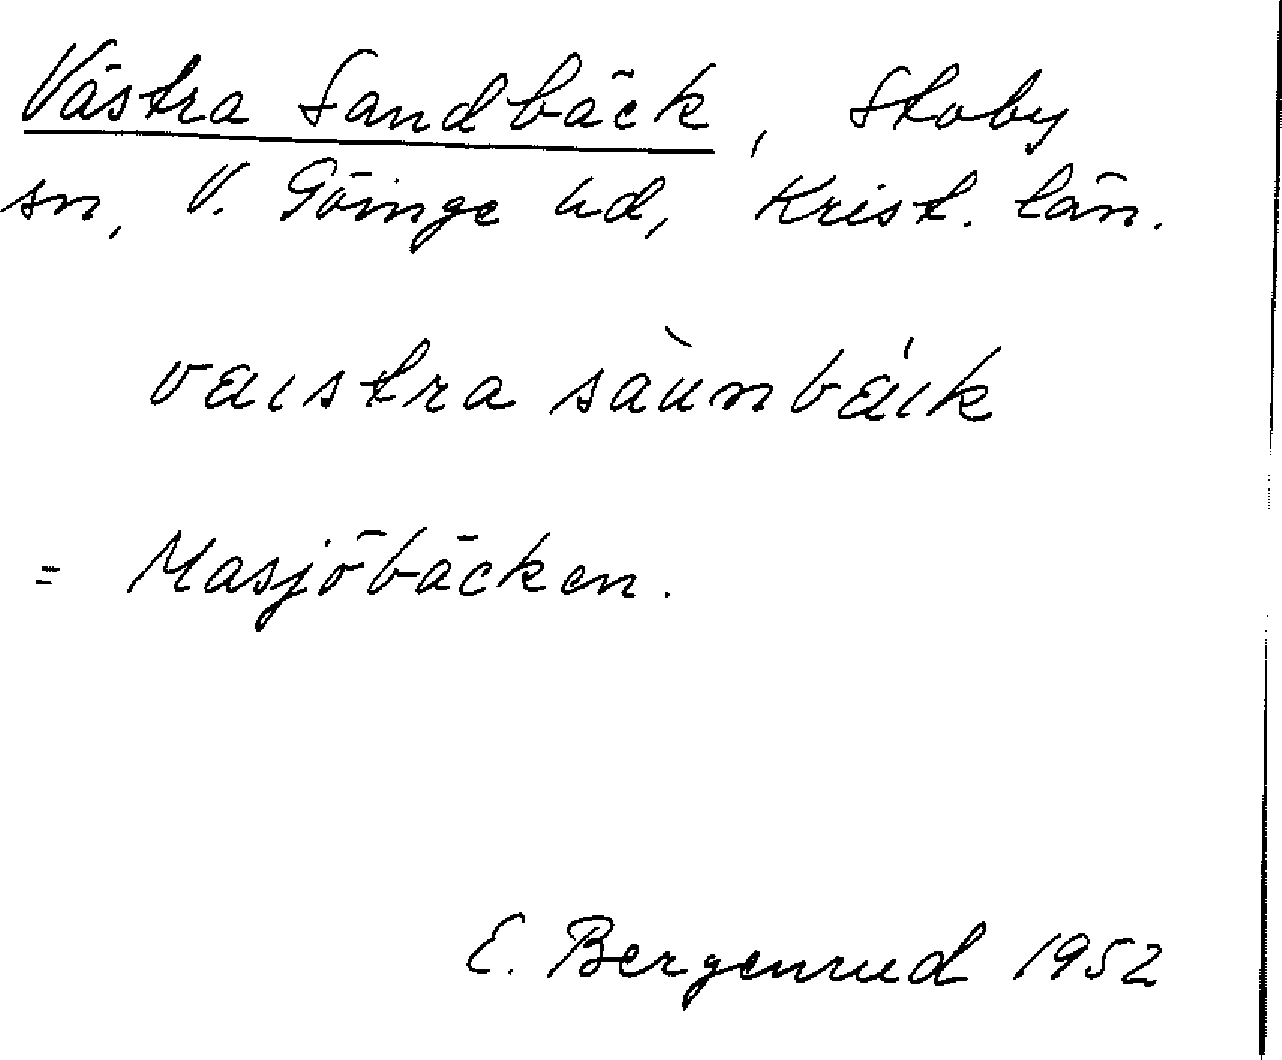 Västra Sandbäck, Stoby
sn, V. Göinge hd, Krist. län.
væıstra sàunbǽık
= Masjöbäcken.
E. Bergenrud 1952